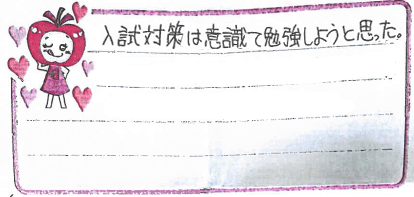 入試対策は意識て勉強しようと思った。